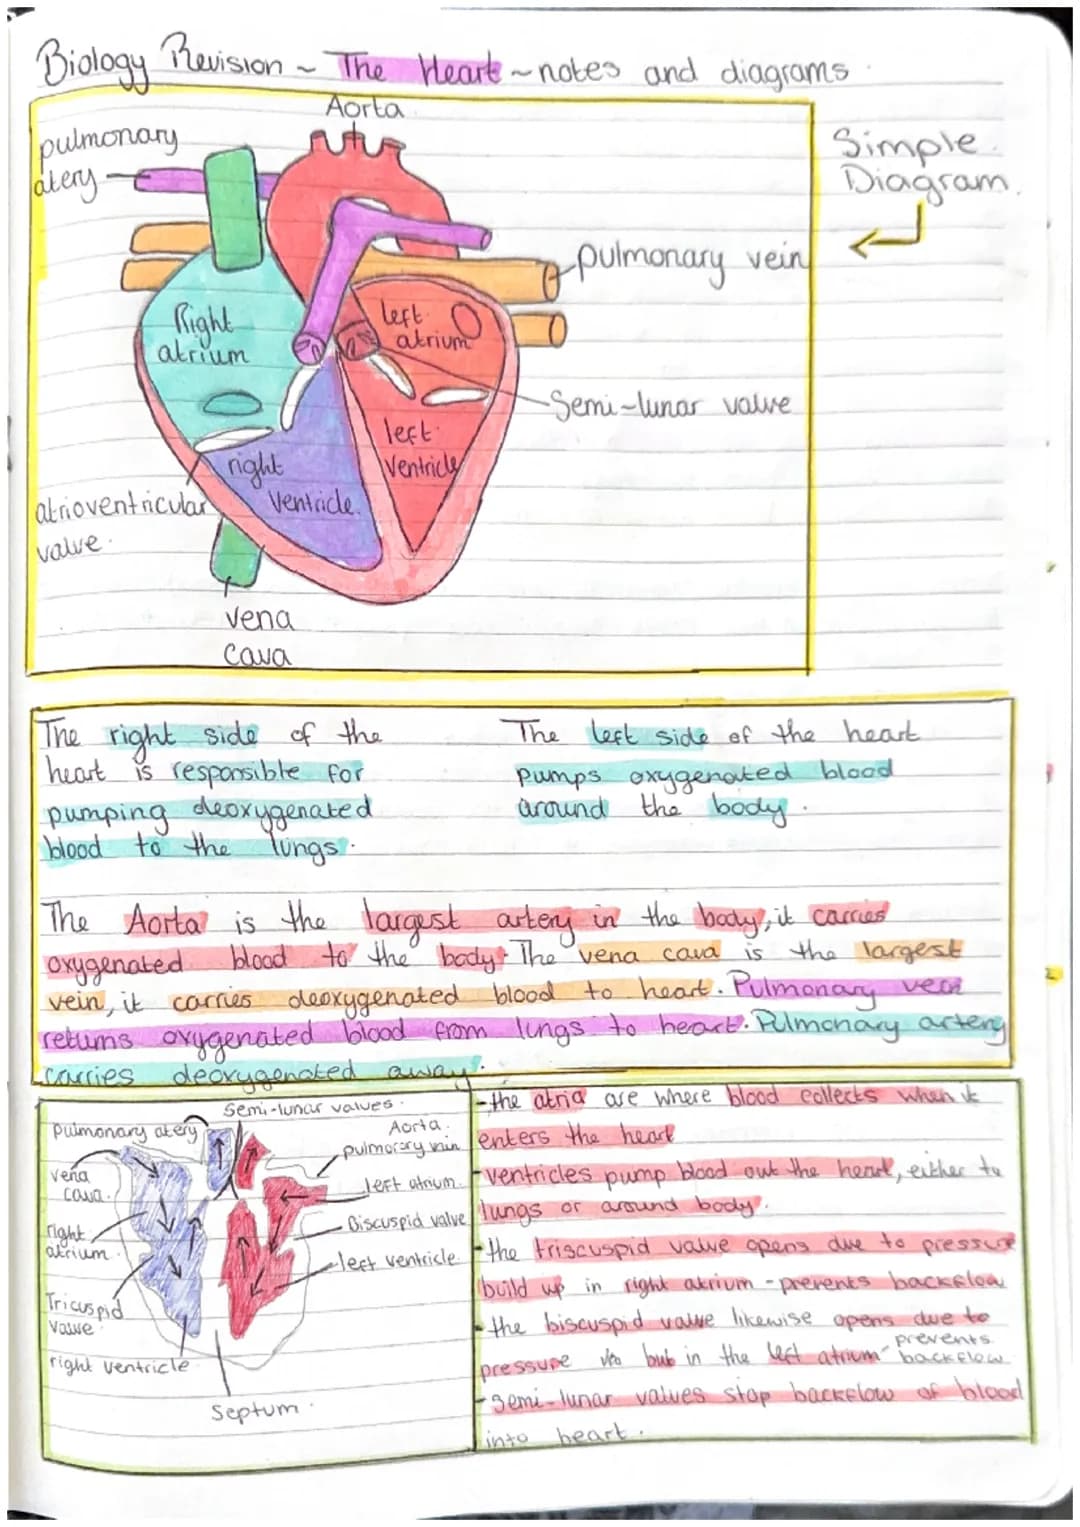 Biology Revision ~ The Heart ~ notes and diagrams
Aorta
pulmonary
atery
Simple
Diagram.
pulmonary vein
Right
atrium
left
atrium
Semi-lunar valve
left
ventricle
right
ventricle.
atrioventricular
valve
vena
cava
The right side of the
heart is responsible for
pumping deoxygenated
blood to the lungs.
The left side of the heart
pumps oxygenated blood
around the body.
The Aorta is the largest artery in the body, it carries
oxygenated blood to the body. The vena cava is the largest
vein, it carries deoxygenated blood to heart. Pulmonary vein
returns oxygenated blood from lungs to heart. Pulmonary artery
carries deoxygenated away.
Semi-lunar valves.
pulmonary atery
Aorta.
pulmonary vein
vena
cava.
left atrium.
right
atrium.
Biscuspid valve
left ventricle.
Tricuspid
valve
right ventricle
Septum.
- the atria are where blood collects when it
enters the heart
- ventricles pump blood out the heart, either to
lungs or around body.
- the triscuspid valve opens due to pressure
build up in right atrium - prevents backflow
- the biscuspid valve likewise opens due to
pressure but in the left atrium - prevents
backflow
- semi-lunar valves stop backflow of blood
into heart.